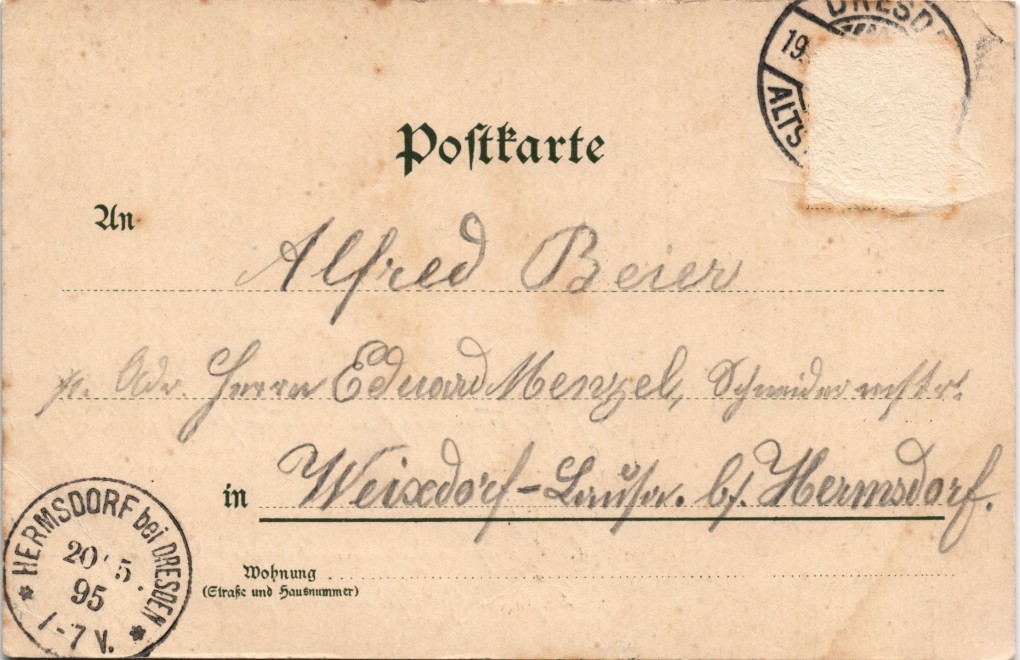 DRESD
19.
ALTS
Postkarte
An
Alfred Beier
p. Adr. Herrn Eduard Menzel, Schneidermstr.
in Weixdorf-Lausa. b/. Hermsdorf.
HERMSDORF bei DRESDEN
20 5.
95
1-7 V.
Wohnung
(Straße und Hausnummer)